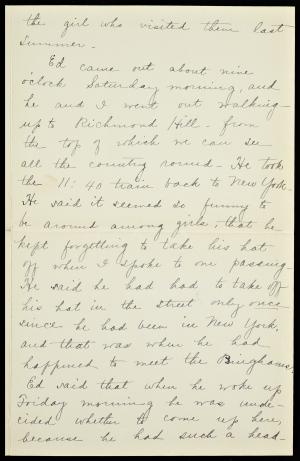 the girl who visited them last
summer -
Ed came out about nine
o'clock Saturday morning, and
he and I went out walking -
up to Richmond Hill - from
the top of which we can see
all the country round - He took
the 11:40 train back to New York -
He said it seemed so funny to
be around among girls, that he
kept forgetting to take his hat
off when I spoke to one passing -
He said he had had to take off
his hat in the street only once
since he had been in New York,
and that was when he had
happened to meet the Binghams,
Ed said that when he woke up
Friday morning he was unde-
cided whether to come up here,
because he had such a head-